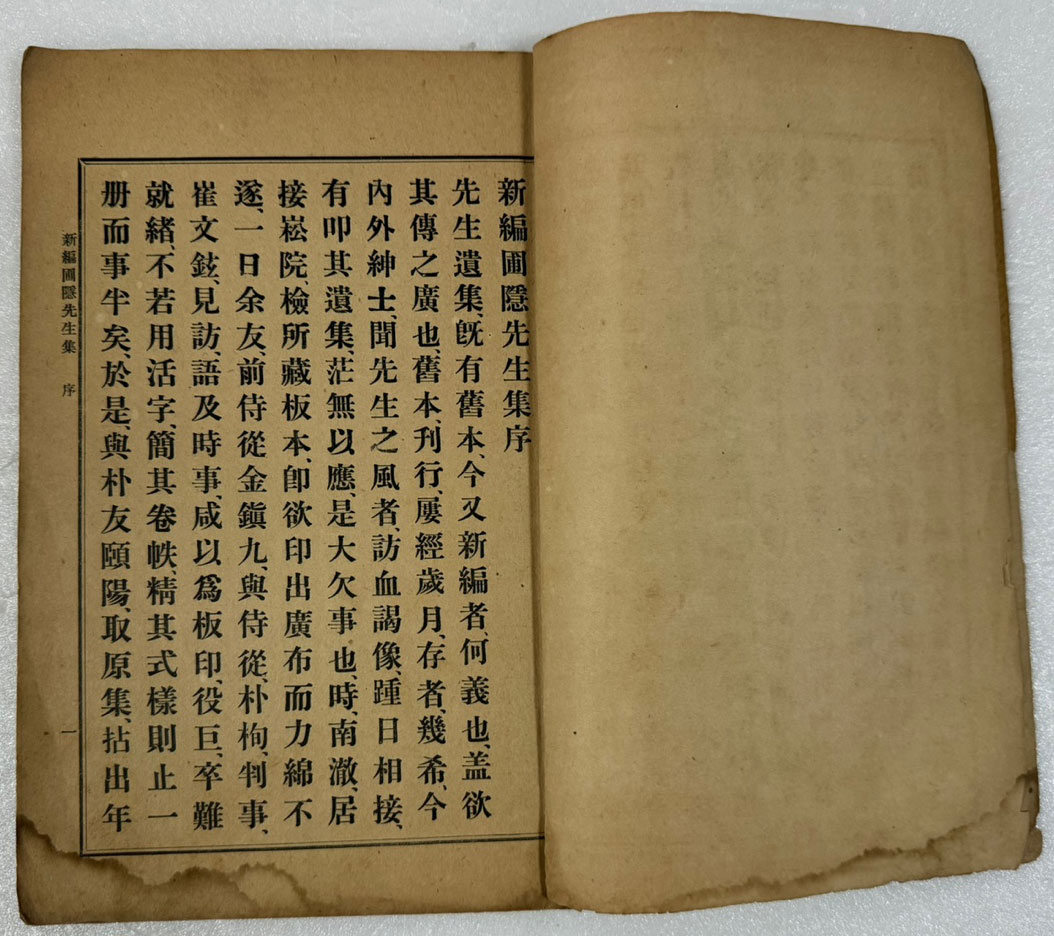 新編圃隱先生集序
先生遺集、旣有舊本、今又新編者、何義也、盖欲
其傳之廣也、舊本、刊行、屢經歲月、存者、幾希、今
內外紳士、聞先生之風者、訪血謁像、踵日相接、
有叩其遺集、茫無以應、是大欠事也、時、南澈、居
接崧院、檢所藏板本、卽欲印出廣布而力綿不
遂、一日余友、前侍從金鎭九、與侍從、朴栒、判事、
崔文鉉、見訪、語及時事、咸以爲板印、役巨、卒難
就緖、不若用活字、簡其卷帙、精其式樣則止一
册而事半矣、於是、與朴友頤陽、取原集、拈出年
新編圃隱先生集 序
一